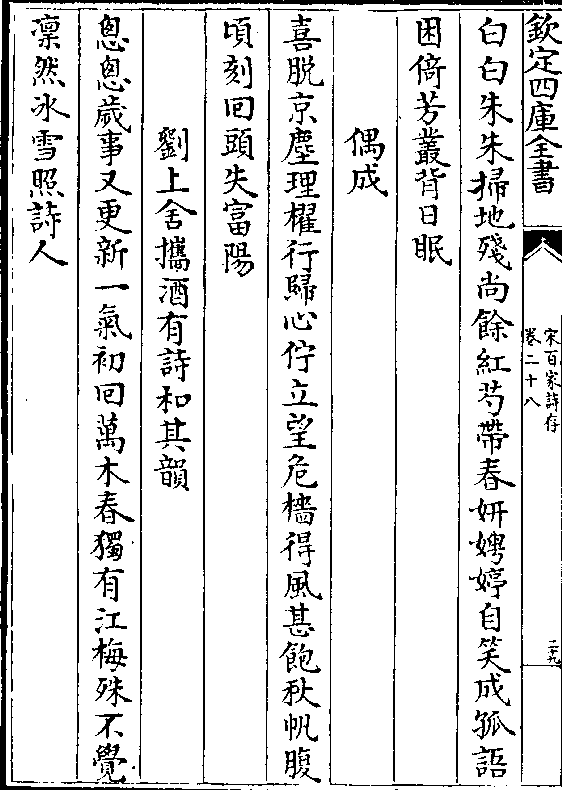 欽定四庫全書
宋百家詩存
卷二十八
二十九
白白朱朱掃地殘尚餘紅芍帶春妍娉婷自笑成孤語
困倚芳叢背日眠
偶成
喜脫京塵理櫂行歸心佇立望危檣得風甚飽秋帆腹
頃刻回頭失富陽
劉上舍攜酒有詩和其韻
怱怱歲事又更新一氣初回萬木春獨有江梅殊不覺
凜然冰雪照詩人